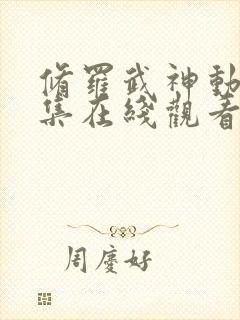 脩羅武神動
集在綫觀看
周慶好